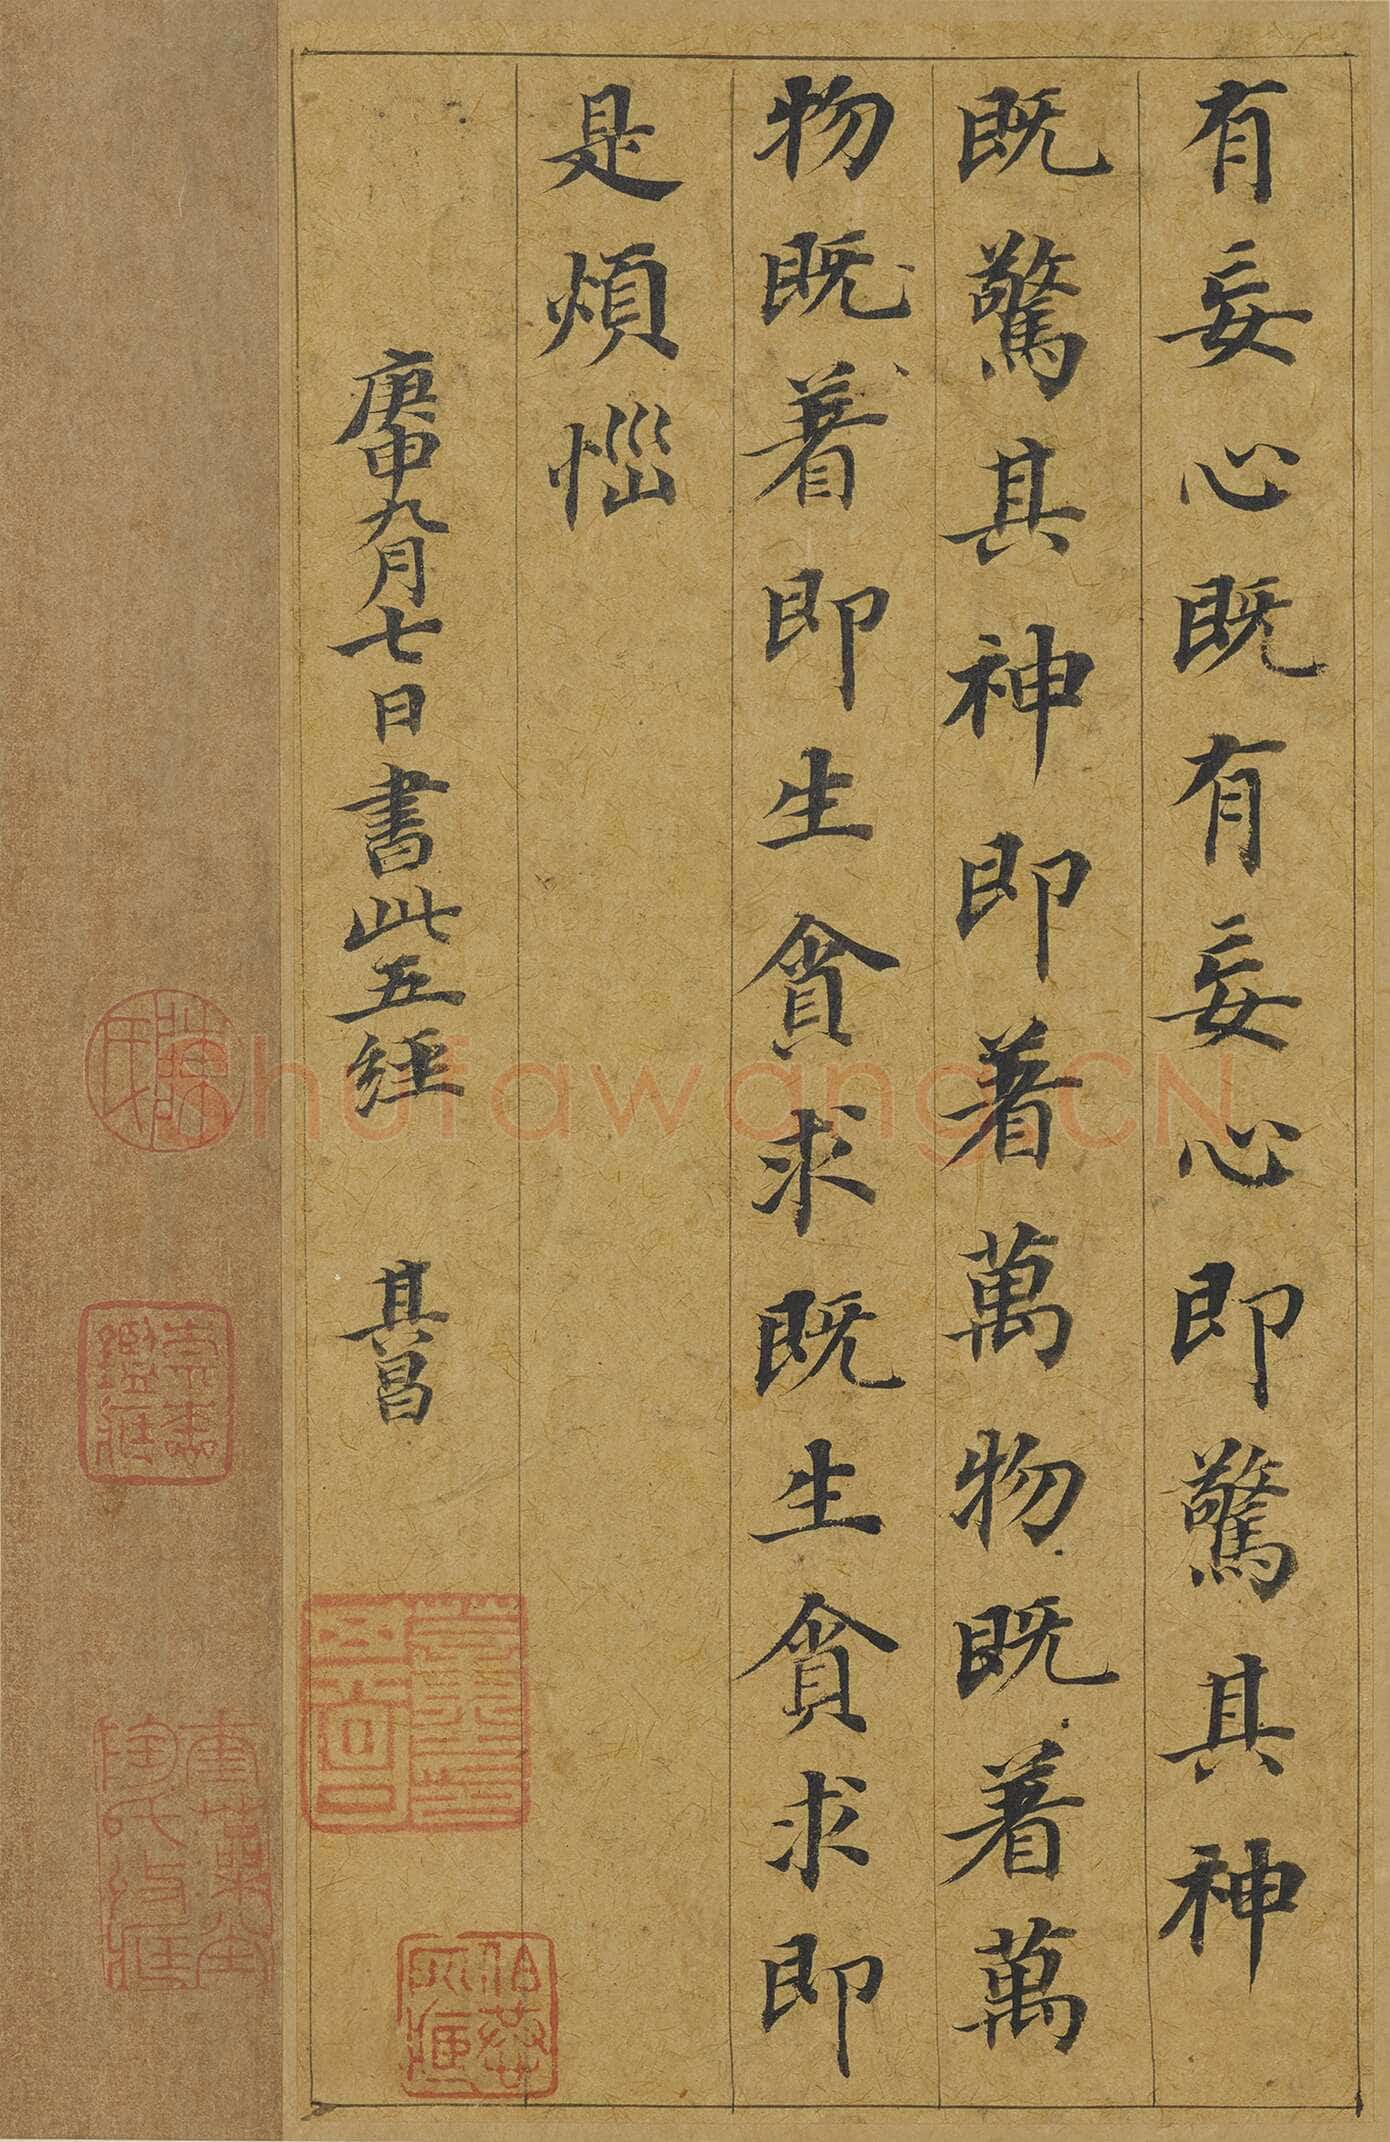 有妄心既有妄心即驚其神
既驚其神即著萬物既著萬
物既著即生貪求既生貪求即
是煩惱
庚申九月七日書此五經 其昌
shufawang.CN